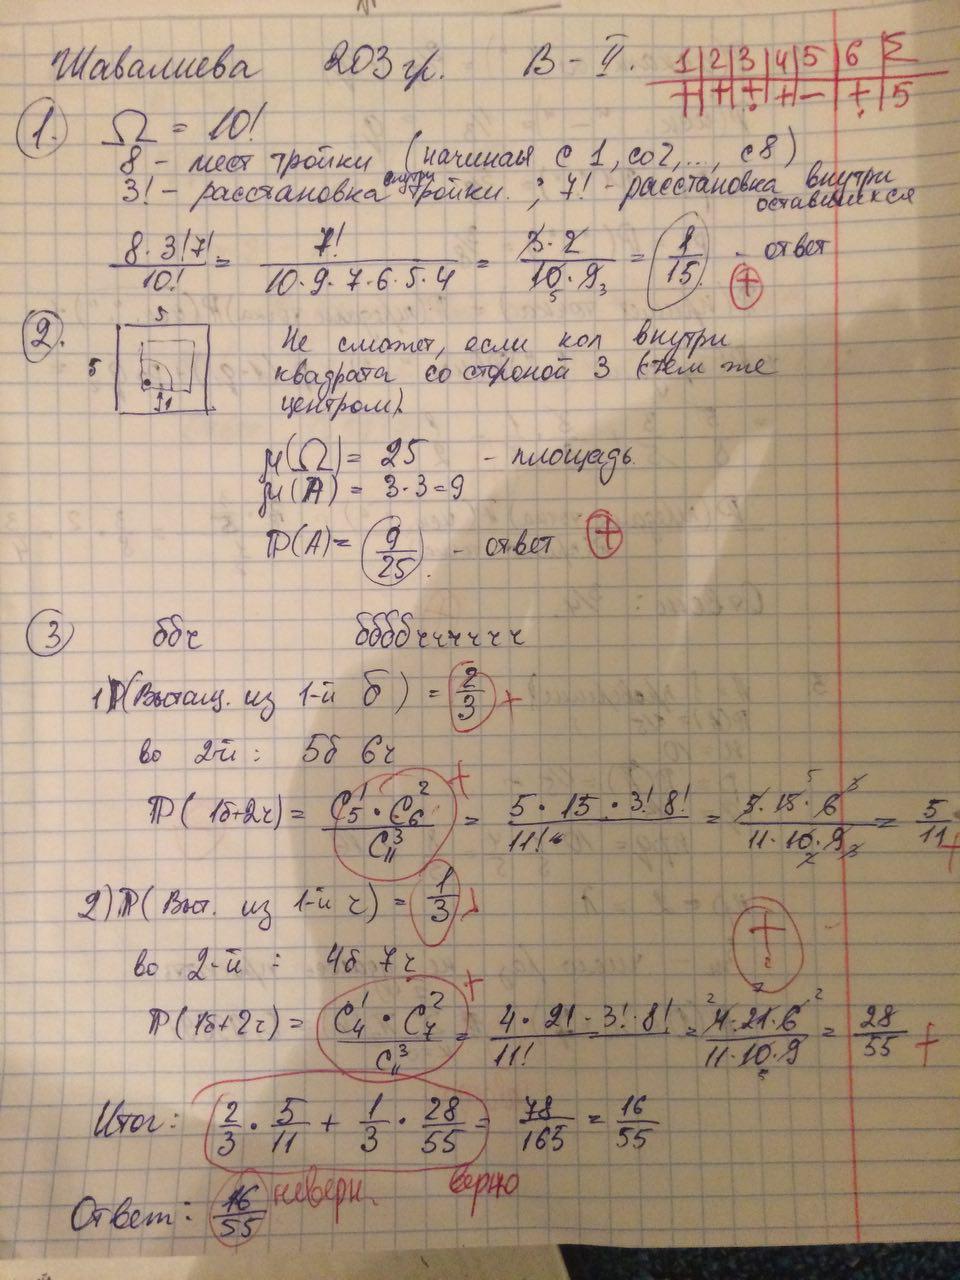 Шавалиева 203 гр. В - II.
1 2 3 4 5 6 Σ
+ + + + − + 5
1. Ω = 10!
8 - мест тройки (начиная с 1, со 2, ..., с 8)
3! - расстановка внутри тройки. ; 7! - расстановка внутри оставшихся
8·3!7!/10! = 7!/10·9·7·6·5·4 = 3·2/10·9 = 1/15 - ответ +
2. 5
5 1
Не сможет, если кол внутри
квадрата со стороной 3 (с тем же
центром).
μ(Ω) = 25 - площадь
μ(A) = 3·3=9
P(A) = 9/25. - ответ +
3 ббч ббббчччччч
1) P(Вытащ. из 1-й б) = 2/3 +
во 2-й: 5б 6ч
P(1б+2ч) = C₅¹·C₆²/C₁₁³ + = 5·15·3!8!/11! = 5·15·6/11·10·9 = 5/11 +
2) P(Выт. из 1-й ч) = 1/3 +
во 2-й: 4б 7ч
P(1б+2ч) = C₄¹·C₇²/C₁₁³ + = 4·21·3!·8!/11! = 4·21·6/11·10·9 = 28/55 +
Итог: 2/3 · 5/11 + 1/3 · 28/55 = 78/165 = 16/55
Ответ: 16/55 неверн. верно